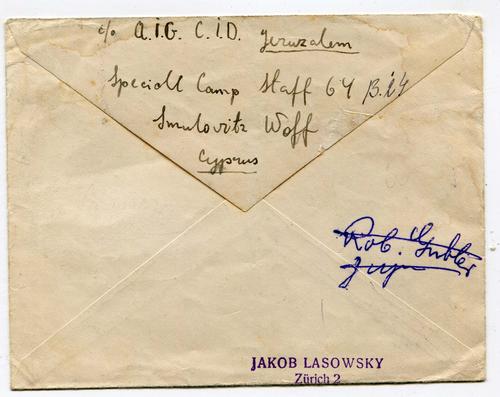 c/o A.I.G. C.I.D. Jeruzalem
Speciall Camp Staff 64
Smulovitz Wolf
Cyprus
Rob.
JAKOB LASOWSKY
Zürich 2